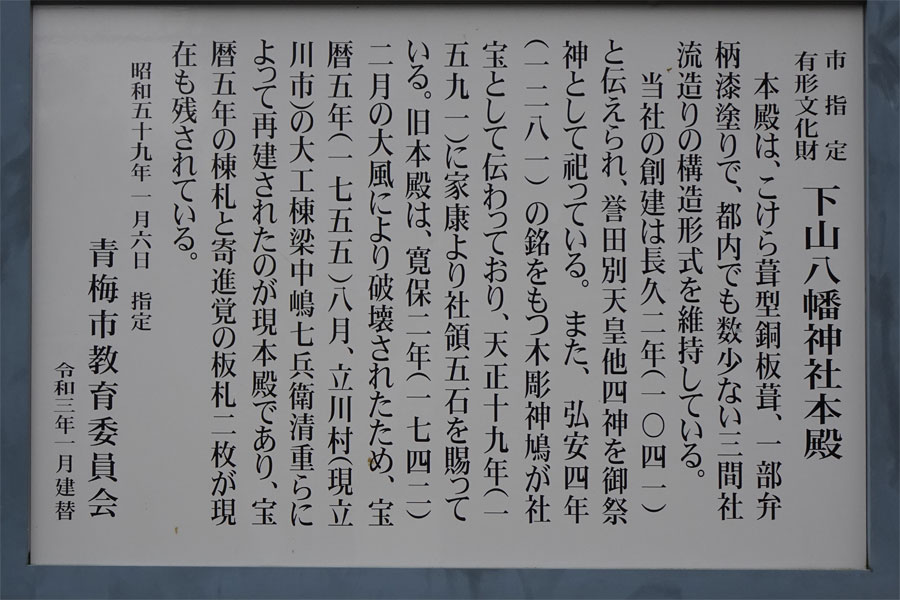 市指定
有形文化財
下山八幡神社本殿
本殿は、こけら葺型銅板葺、一部弁
柄漆塗りで、都内でも数少ない三間社
流造りの構造形式を維持している。
当社の創建は長久二年(一〇四一)
と伝えられ、誉田別天皇他四神を御祭
神として祀っている。また、弘安四年
(一二八一)の銘をもつ木彫神鳩が社
宝として伝わっており、天正十九年(一
五九一)に家康より社領五石を賜って
いる。旧本殿は、寛保二年(一七四二)
二月の大風により破壊されたため、宝
暦五年(一七五五)八月、立川村(現立
川市)の大工棟梁中嶋七兵衛清重らに
よって再建されたのが現本殿であり、宝
暦五年の棟札と寄進覚の板札二枚が現
在も残されている。
昭和五十九年一月六日 指定
青梅市教育委員会
令和三年一月建替